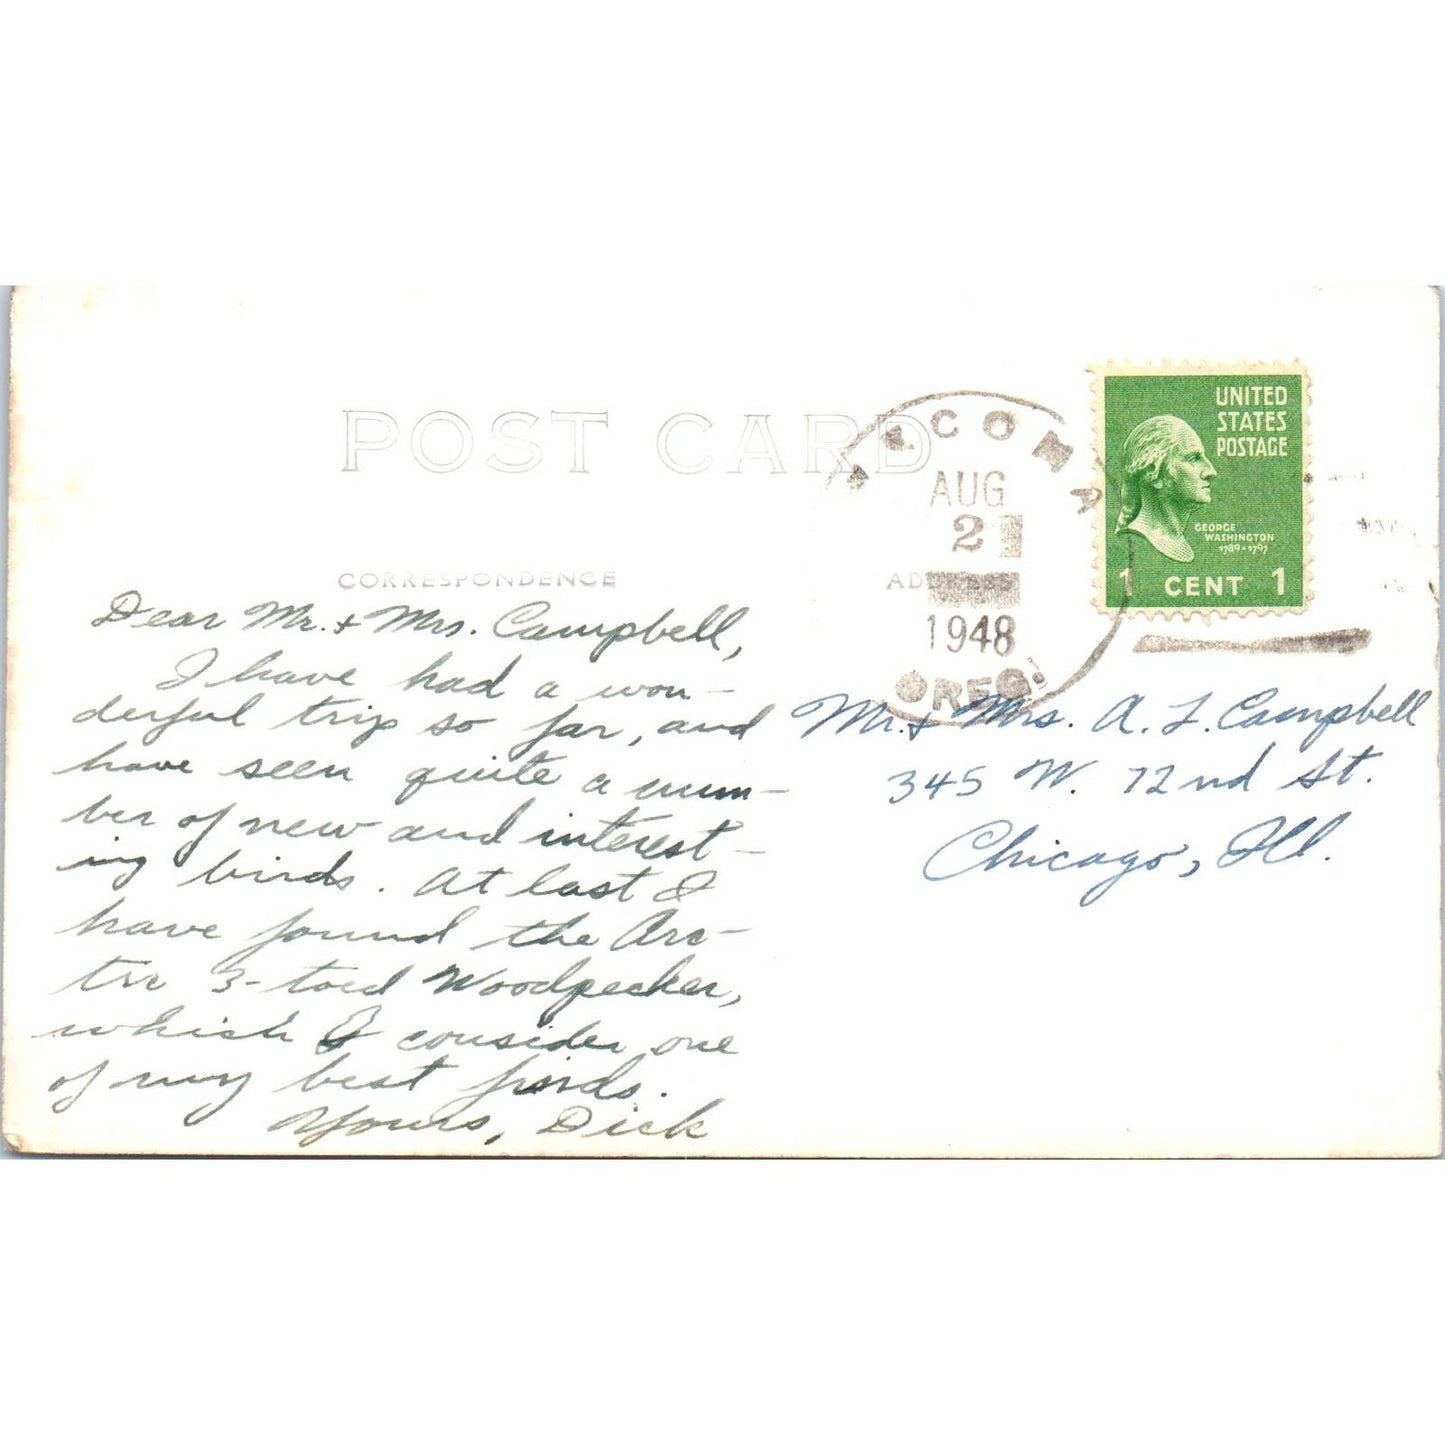 POST CARD
CORRESPONDENCE
ADDRESS
AUG
2
1948
OREG.
UNITED
STATES
POSTAGE
GEORGE
WASHINGTON
1789-1797
1 CENT 1
Dear Mr. & Mrs. Campbell,
I have had a won-
derful trip so far, and
have seen quite a num-
ber of new and interest-
ing birds. At last I
have found the Arc-
tic 3-toed Woodpecker,
which I consider one
of my best finds.
Yours, Dick
Mr. & Mrs. A. L. Campbell
345 W. 72nd St.
Chicago, Ill.